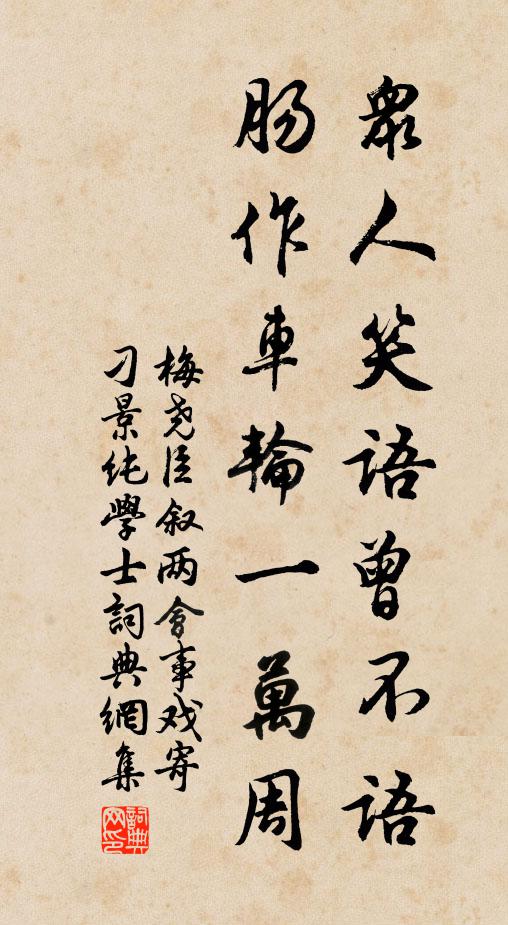 衆人笑語曾不語
腸作車輪一萬周
梅尧臣叙两會事戏寄
刁景纯學士詞典網集
詞典网印